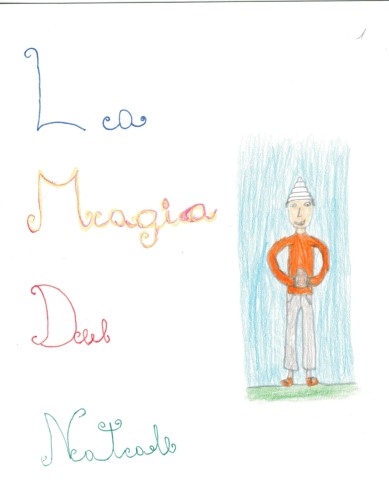 1
La
Magia
Del
Natale